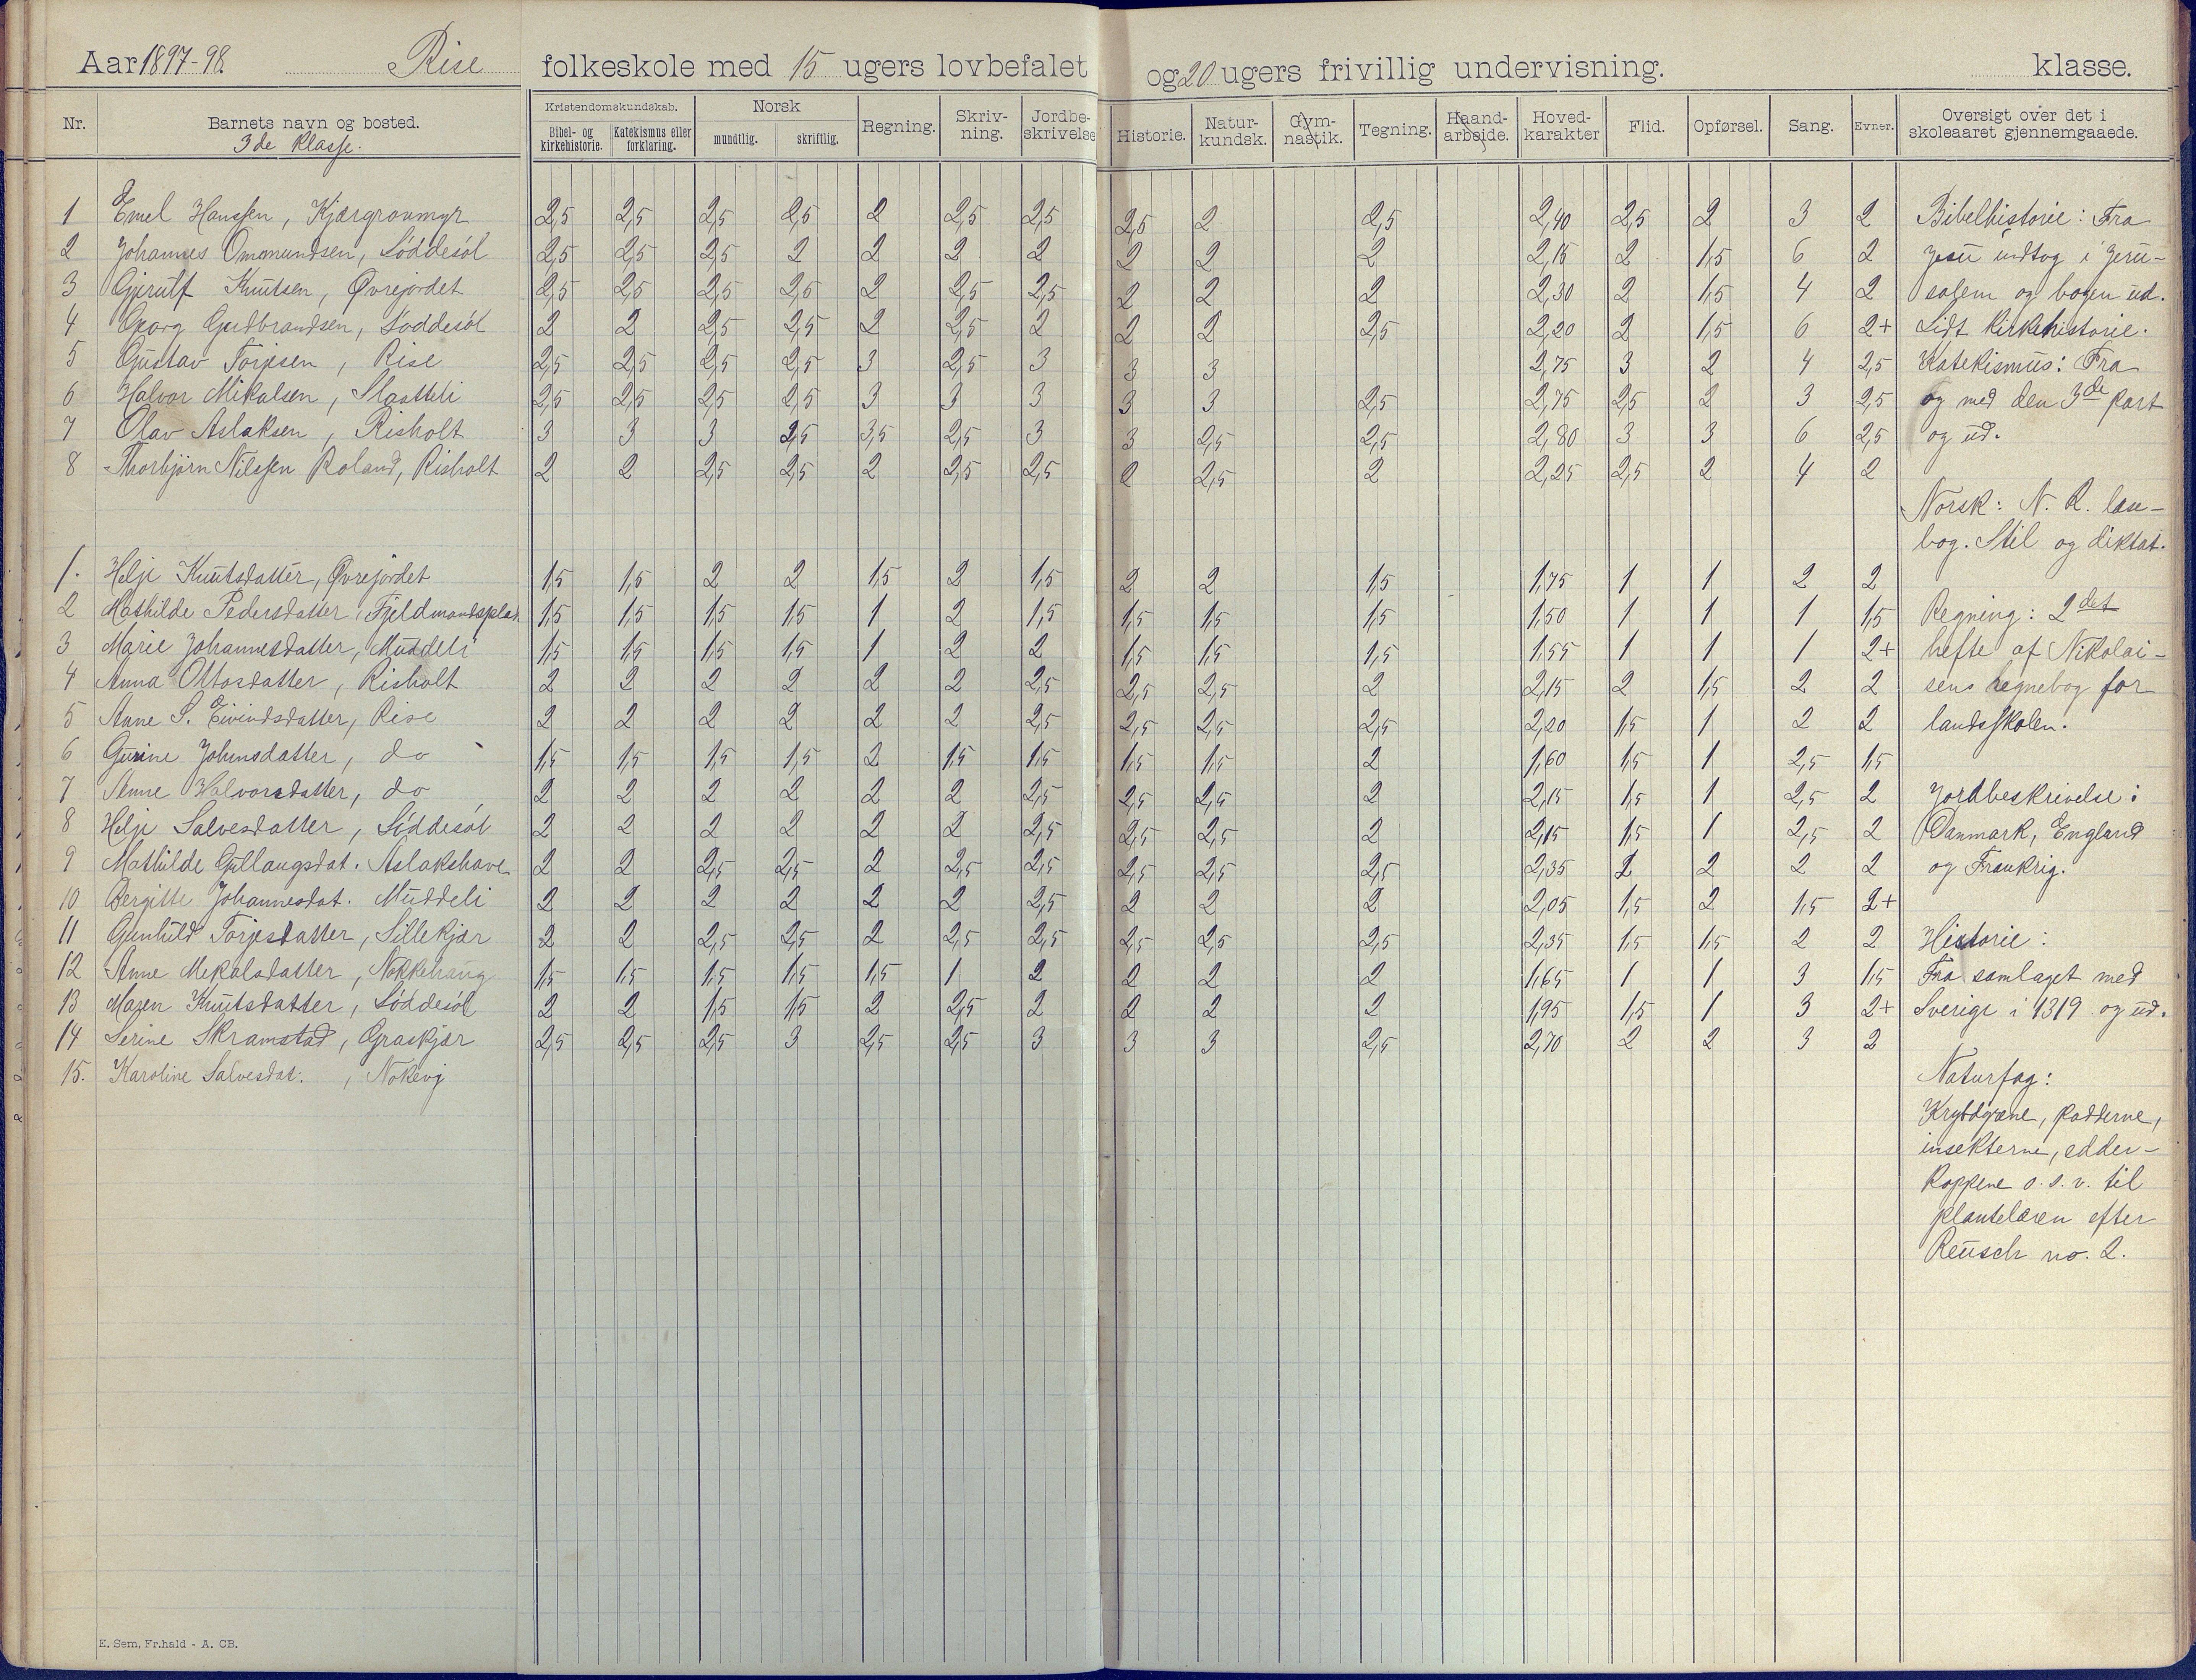 Aar 1897-98. Rise folkeskole med 15 ugers lovbefalet og 20 ugers frivillig undervisning. klasse.
Nr. Barnets navn og bosted. Kristendomskundskab. Norsk Regning. Skriv-ning. Jordbe-skrivelse Historie. Natur-kundsk. Gym-nastik. Tegning. Haand-arbejde. Hoved-karakter Flid. Opførsel. Sang. Evner. Oversigt over det i skoleaaret gjennemgaaede.
3de klasse. Bibel- og kirkehistorie. Katekismus eller forklaring. mundtlig. skriftlig.
1 Emel Hanssen, Kjærgrovmyr 2,5 2,5 2,5 2,5 2 2,5 2,5 2,5 2 2,5 2,40 2,5 2 3 2
2 Johannes Ommundsen, Løddesøl 2,5 2,5 2,5 2 2 2 2 2 2 2 2,15 2 1,5 6 2
3 Gjerulf Knutsen, Øvrejordet 2,5 2,5 2,5 2,5 2 2,5 2,5 2 2 2 2,30 2 1,5 4 2
4 Georg Gudbrandsen, Løddesøl 2 2 2,5 2,5 2 2,5 2 2 2 2,5 2,20 2 1,5 6 2+
5 Gustav Torjesen, Rise 2,5 2,5 2,5 2,5 3 2,5 3 3 3 2,75 3 2 4 2,5
6 Halvor Mikalsen, Slaatteli 2,5 2,5 2,5 2,5 3 3 3 3 3 2,5 2,75 2,5 2 3 2,5
7 Olav Aslaksen, Risholt 3 3 3 2,5 3,5 2,5 3 3 2,5 2,5 2,80 3 3 6 2,5
8 Thorbjørn Nilssen Roland, Risholt 2 2 2,5 2,5 2 2,5 2,5 2 2,5 2 2,25 2,5 2 4 2
1. Helje Knutsdatter, Øvrejordet 1,5 1,5 2 2 1,5 2 1,5 2 2 1,5 1,75 1 1 2 2
2 Mathilde Pedersdatter, Fjeldmandsplads 1,5 1,5 1,5 1,5 1 2 1,5 1,5 1,5 1,5 1,50 1 1 1 1,5
3 Marie Johannesdatter, Muddeli 1,5 1,5 1,5 1,5 1 2 2 1,5 1,5 1,5 1,55 1 1 1 2+
4 Anna Ottosdatter, Risholt 2 2 2 2 2 2 2,5 2,5 2,5 2 2,15 2 1,5 2 2
5 Anne S. Eivindsdatter, Rise 2 2 2 2 2 2 2,5 2,5 2,5 2,5 2,20 1,5 1 2 2
6 Gurine Johnsdatter, do 1,5 1,5 1,5 1,5 2 1,5 1,5 1,5 1,5 2 1,60 1,5 1 2,5 1,5
7 Anne Halvorsdatter, do 2 2 2 2 2 2 2,5 2,5 2,5 2 2,15 1,5 1 2,5 2
8 Helje Salvesdatter, Løddesøl 2 2 2 2 2 2 2,5 2,5 2,5 2 2,15 1,5 1 2,5 2
9 Mathilde Gullaugsdat. Aslakshave 2 2 2,5 2,5 2 2,5 2,5 2,5 2,5 2,5 2,35 2 2 2 2
10 Bergitte Johannesdat. Muddeli 2 2 2 2 2 2 2,5 2 2 2 2,05 1,5 2 1,5 2+
11 Gunhild Torjesdatter, Lillekjær 2 2 2,5 2,5 2 2,5 2,5 2,5 2,5 2,5 2,35 1,5 1,5 2 2
12 Anne Mikalsdatter, Nokkehaug 1,5 1,5 1,5 1,5 1,5 1 2 2 2 2 1,65 1 1 3 1,5
13 Maren Knutsdatter, Løddesøl 2 2 1,5 1,5 2 2,5 2 2 2 2 1,95 1,5 1 3 2+
14 Serine Skramstad, Graskjær 2,5 2,5 2,5 3 2,5 2,5 3 3 3 2,5 2,70 2 2 3 2
15. Karoline Salvesdat., Nokevj
Bibelhistorie: Fra
Jesu indtog i Jeru-
salem og bogen ud.
Lidt kirkehistorie.
Katekismus: Fra
og med den 3de part
og ud.
Norsk: N. R. læse-
bog. Stil og diktat.
Regning: 2det
hefte af Nikolai-
sens regnebog for
landsskolen.
Jordbeskrivelse:
Danmark, England
og Frankrig.
Historie:
Fra samlaget med
Sverige i 1319 og ud.
Naturfag:
Krybdyrene, padderne,
insekterne, edder-
koppene o.s.v. til
plantelæren efter
Reusch no. 2.
E. Sem, Fr.hald - A. CB.